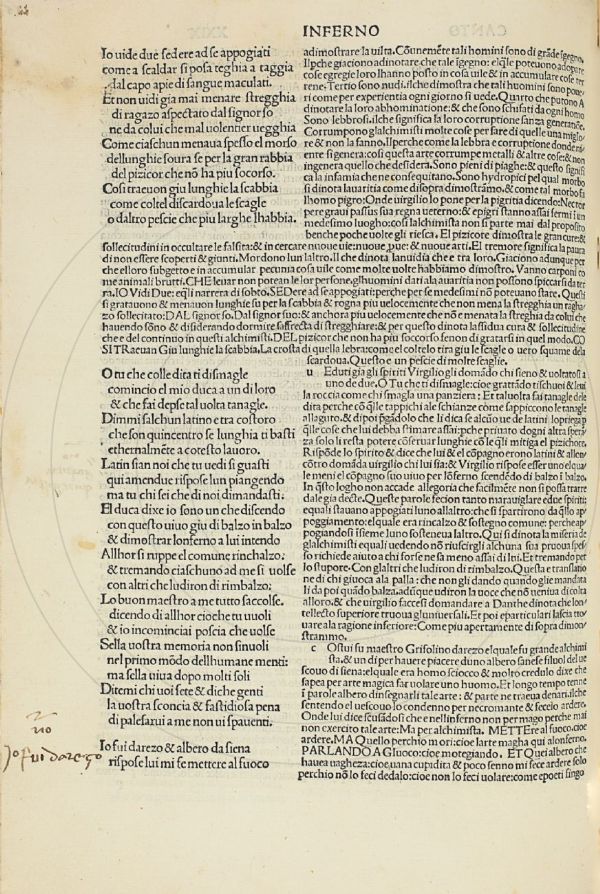 INFERNO
Io uide due sedere ad se appogiati
come a scaldar si posa teghia a taggia
dal capo apie di sangue maculati.
Et non uidi gia mai menare stregghia
di ragazo aspectato dal signor so
ne da colui che mal uolentier uegghia
Come ciaschun menaua spesso el morso
dellunghie soura se per la gran rabbia
del pizicor che nõ ha piu socorso.
Cosi traeuon giu lunghie la scabbia
come coltel discardoua le scagle
o daltro pescie che piu larghe lhabbia.
adimostrare la uilta. Cõunemẽte tali homini sono di grãde igegno.
Ilpche giaciono adinotare che tale igegno: elqle poteuono adopare
cose egregie loro lhanno posto in cosa uile & in accumulare cose ter
rene. Tertio sono nudi. ilche dimostra che tali huomini sono poue
ri come per experientia ogni giorno si uede. Quarto che putono A
dinotare la loro abhominatione: & che sono schifati da ogni homo
Sono lebbrosi. ilche significa la loro corruptione sanza generatiõe.
Corrumpono glalchimisti molte cose per fare di quelle una miglo
re & non la fanno. Ilperche come la lebbra e corruptione donde ni
ente si genera: cosi questa arte corrumpe metalli & altre cose: & non
ingenera quello che desidera. Sono pieni di piaghe: & questo signifi
ca la infamia che ne consequitano. Sono hydropici pel qual morbo
si dinota lauaritia come disopra dimostrãmo. & come tal morbo fa
lhomo pigro: Onde uirgilio lo pone per la pigritia dicendo: Nector
medesimo luogho: cosi lalchimista non si parte mai dal proposito
benche poche uolte gli riesca. El pizicore dimostra le gran cure: &
sollecitudini in occultare le falsita: & in cercare nuoue uie: nuoue, pue: & nuoue arti. El tremore significa la paura
di non essere scoperti & giunti. Mordono lun laltro. Il che dinota lanuidia che e tra loro. Giaciono adunque per
che elloro subgetto e in accumular pecunia cosa uile come molte uolte habbiamo dimostro. Vanno carponi co
me animali brutti. CHE leuar non potean le lor persone. glhuomini dati ala auaritia non possono spiccarsi da ter
ra. IO Vidi Due: eqli narrera di sobto. SEDere ad se appoggiati perche per se medesimi nõ poteuano stare. Questi
si grattauono & menauon lunghie su per la scabbia & rogna piu uelocemente che non mena la stregghia un ragha/
zo sollecitato: DAL signor so. Dal signor suo: & anchora piu uelocemente che nõ e menata la streghia da colui che
hauendo sõno & disiderando dormire saffrecta di stregghiare: & per questo dinota lassidua cura & sollecitudine
che e del continuo in questi alchimisti. DEL pizicor che non ha piu soccorso senon di gratarsi in quel modo. CO
SI Traeuan Giu lunghie la scabbia. La crosta di quella lebra: come el coltello tira giu le scagle o uero squame dela
scardoua. Questo e un pescie di molte scaglie.
O tu che colle dita ti dismagle
comincio el mio duca a un di loro
& che fai depse tal uolta tanagle.
Dimmi salchun latino e tra costoro
che son quincentro se lunghia ti basti
ethernalmẽte a cotesto lauoro.
Latin sian noi che tu uedi si guasti
qui amendue rispose lun piangendo
ma tu chi sei che di noi dimandasti.
El duca dixe io sono un che discendo
con questo uiuo giu di balzo in balzo
& dimostrar lonferno a lui intendo
Allhor si ruppe el comune rinchalzo:
& tremando ciaschuno ad me si uolse
con altri che ludiron di rimbalzo:
Lo buon maestro a me tutto saccolse.
dicendo di allhor cioche tu uuoli
& io incominciai poscia che uolse
Sella uostra memoria non sinuoli
nel primo mõdo dellhumane menti:
ma sella uiua depo molti soli
Ditemi chi uoi sete & diche genti
la uostra sconcia & fastidiosa pena
di palesarui a me non ui spauenti.
Io fui darezo & albero da siena
rispose lui mi fe mettere al fuoco
Jo fui darezo
u Eduti gia gli spiriti Virgilio gli domãdo chi sieno & uoltatosi a
uno de due. O Tu che ti dismagle: cioe grattãdo ti schuoi & leui
la roccia come chi smagla una panziera: Et tal uolta fai tanagle dele
dita perche cõ qlle tappichi ale schianze come sappiccono le tanagle
alla guto. & dipoi pgãdolo che li dica se alcũo ue de latini. lopriega p
qlle cose che lui debba stimare assai: pche priuato dogni altra sperã/
za solo li resta potere cõseruar lunghie cõ le qli mitiga el pizichore.
Rispõde lo spirito & dice che lui & el cõpagno erono latini & allen/
cõtro domãda uirgilio chi lui sia: & Virgilio rispose esser uno elqua
le meni el cõpagno suo uiuo per lõferno scendẽdo di balzo i balzo.
In qsto logho non accade allegoria che facilmẽte non si possa trarre
dale gia decte. Queste parole fecion tanto marauiglare edue spiriti:
equali stauano appogiati luno allaltro: che si spartirono da qllo ap
poggiamento: elquale era rincalzo & sostegno comune: perche ap/
pogiandosi isieme luno sosteneua laltro. Qui si dinota la miseria de
glalchimisti equali uedendo nõ riuscirgli alchuna sua pruoua spes/
so richiede aiuto a chi forse ne sa meno assai di lui. Et tremando pe/
lo stupore. Con glaltri che ludiron di rimbalzo. Questa e translatio/
ne di chi giuoca ala palla: che non gli dando quando glie mandata
li da poi quãdo balza. adũque udiron la uoce che nõ ueniua di colta
alloro. & che uirgilio faccesi domandare a Danthe dinota che lon/
tellecto superiore truoua gluniuersali. Et poi eparticulari lascia troua
uare ala ragione inferiore: Come piu apertamente di sopra dimo
strammo.
c Ostui su maestro Grifolino darezo elquale fu grande alchimi
sta. & un di per hauere piacere duno albero sanese filuol del ue
scouo di siena: elquale era homo sciocco & molto credulo dixe che
sapea per arte magica far uolare uno huomo. Et longo tempo tenne
i parole albero dinsegnarli tale arte: & parte ne traeua denari. ilche
sentendo el uescouo lo condenno per necromante & feceło ardere.
Onde lui dice scusãdosi che e nellinferno non per mago perche mai
non exercito tale arte: Ma per alchimista. METTEre al fuoco. cioe
ardere. MA Quello perchio mori: cioe larte magha qui alonferno.
PARLANDO A Giuoco: cioe motegiando. ET Quel albero che
hauea uagheza: cioe, una cupidita & poco senno mi fece ardere solo
perchio nõ lo feci dedalo: cioe non lo feci uolare: come epoeti fingo